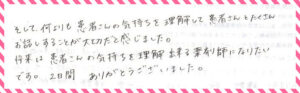 そして、何よりも患者さんの気持ちを理解して患者さんとたくさん
お話しすることが大切だと感じました。
将来は患者さんの気持ちを理解出来る薬剤師になりたい
です。2日間 ありがとうございました。